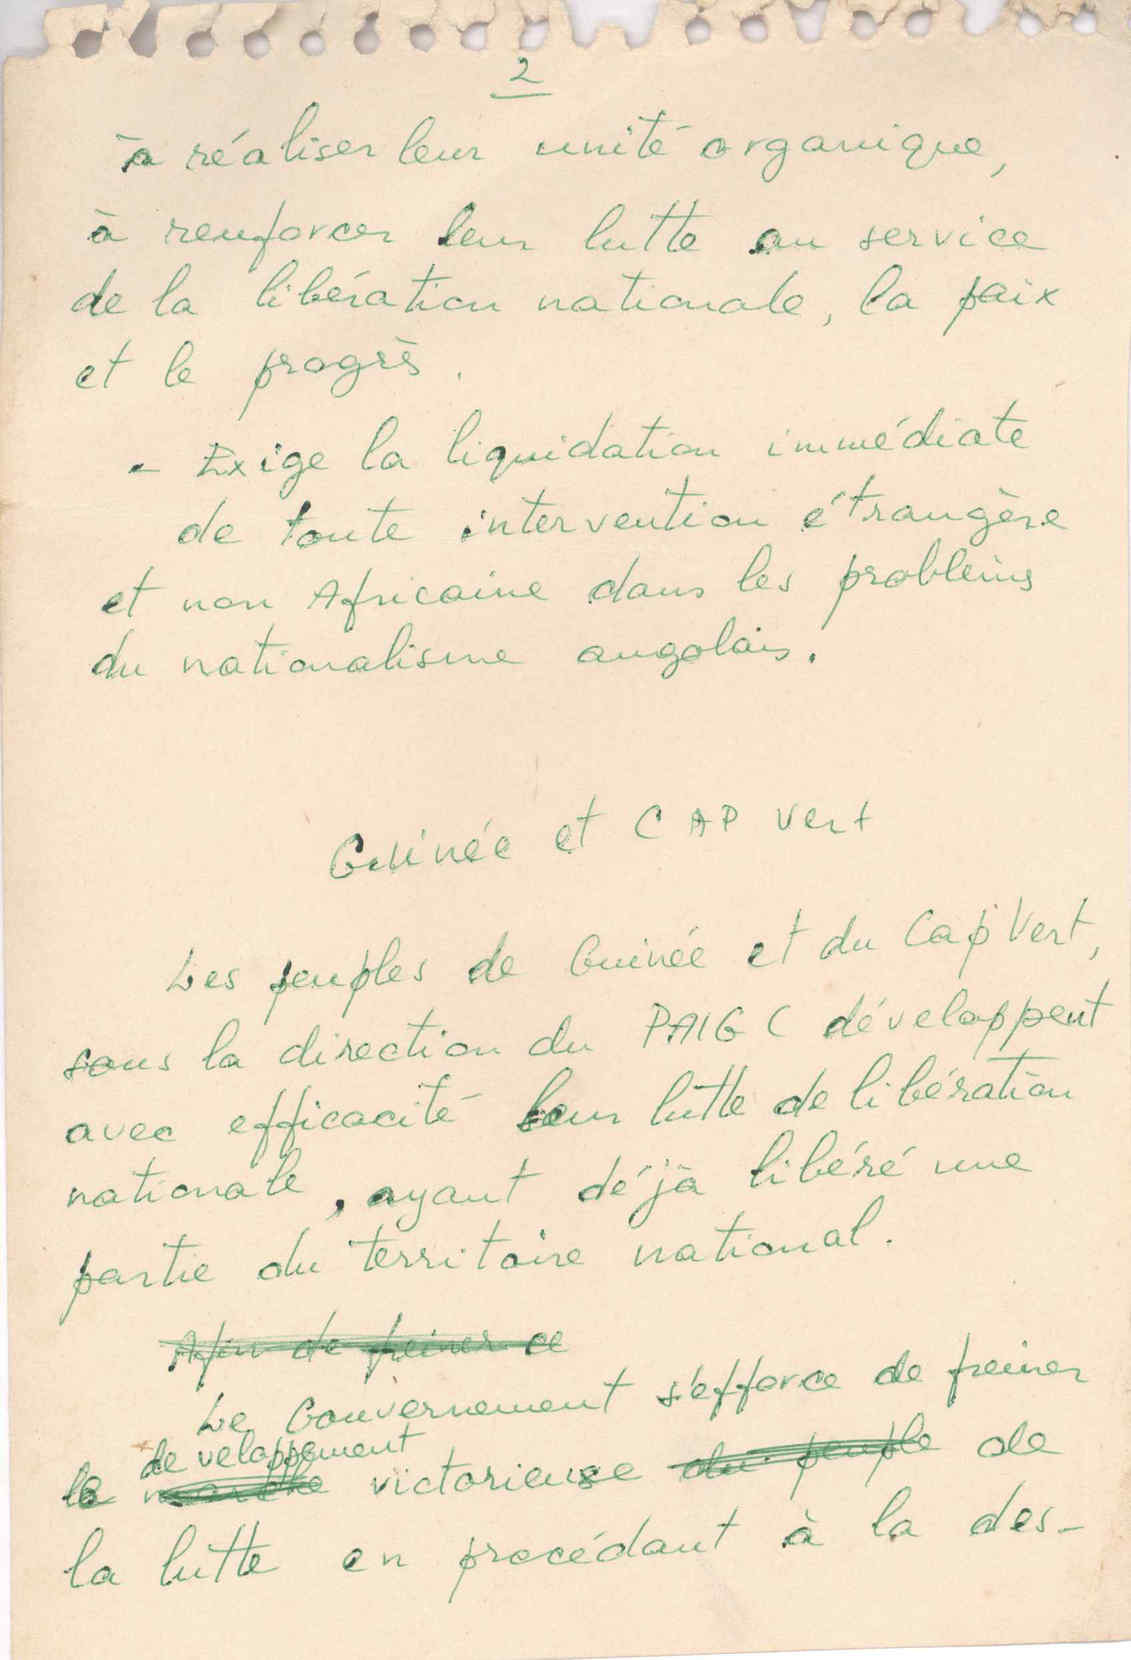 2
à réaliser leur unité organique,
à renforcer leur lutte au service
de la libération nationale, la paix
et le progrès.
- Exige la liquidation immédiate
de toute intervention étrangère
et non Africaine dans les problèms
du nationalisme angolais.
Guinée et CAP Vert
Les peuples de Guinée et du Cap Vert,
sous la direction du PAIGC développent
avec efficacité leur lutte de libération
nationale, ayant déjà libéré une
partie du territoire national.
Afin de freiner ce
Le Gouvernement s'efforce de freiner
developpement
le marche victorieuse du peuple de
la lutte en procédant à la des-